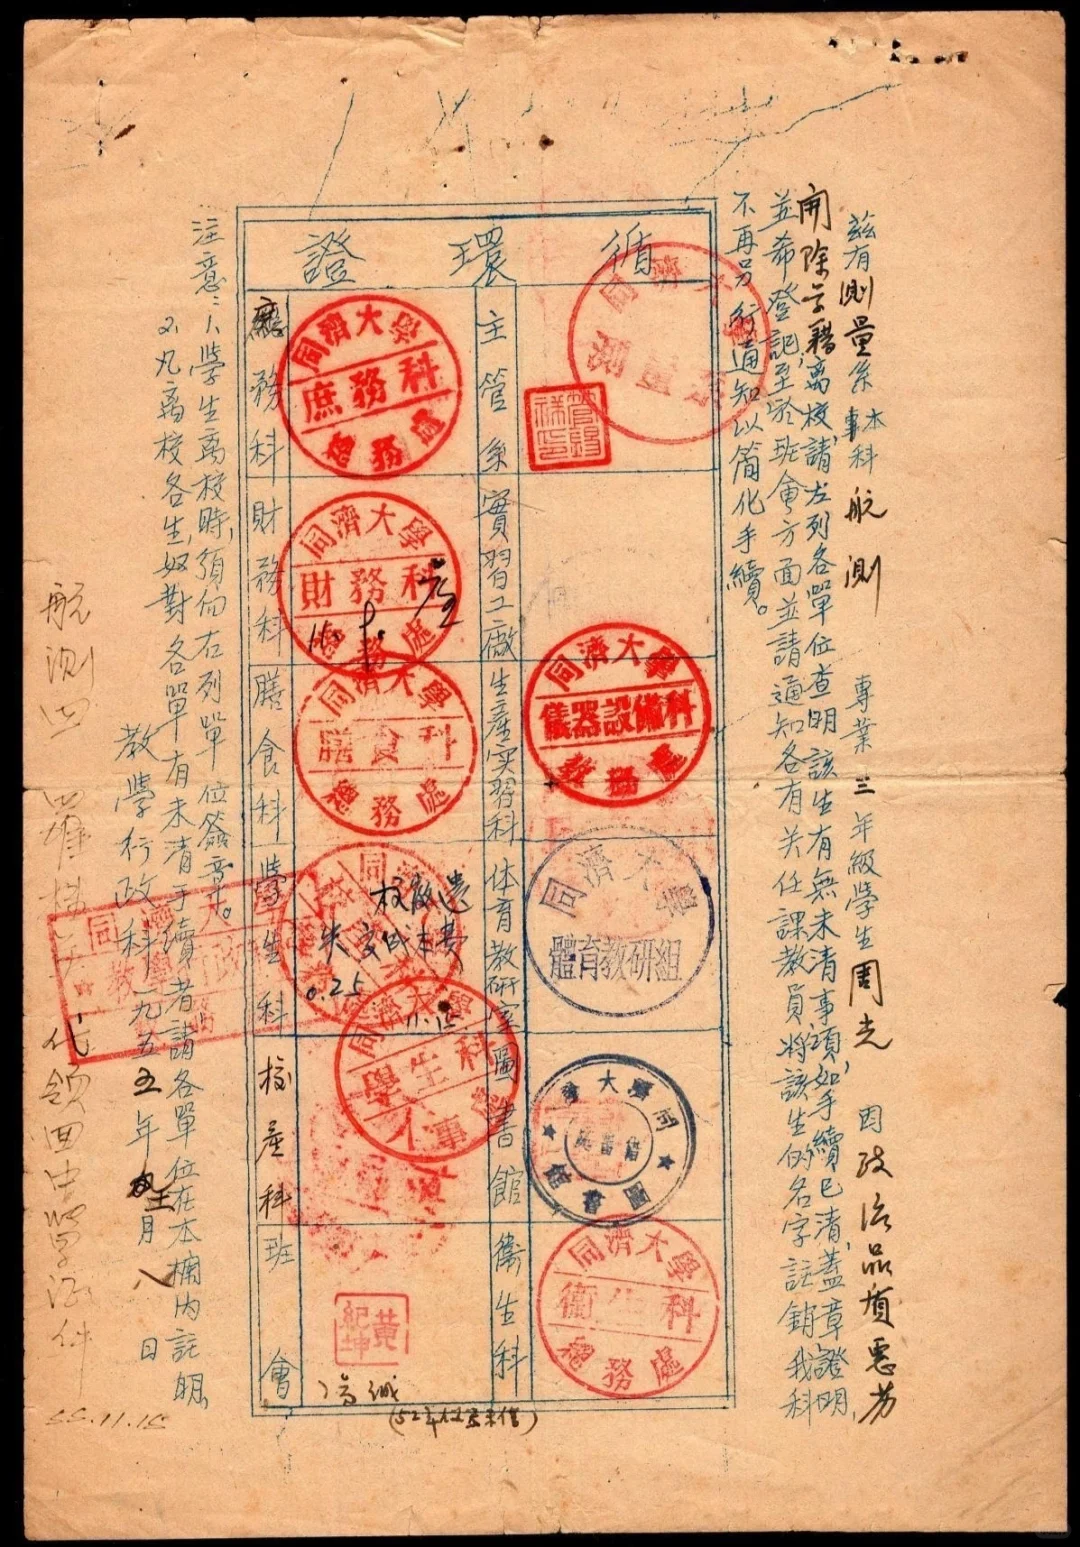 茲有測量系本專科航測專業三年級學生周光因政治品質惡劣
開除学籍離校,請左列各單位查明該生有無未清事項,如手續已清,蓋章證明,
並希登記,至於班會方面並請通知各有关任課教員將該生的名字註銷我科
不再另行通知以簡化手續。
循環證
主管系
同濟大學
測量系
實習工廠
生產实習科
同濟大學
儀器設備科
教務處
体育教研室
同濟大學
體育教研組
圖書館
同濟大學
圖書館
衛生科
同濟大學
衛生科
總務處
庶務科
同濟大學
庶務科
總務處
財務科
同濟大學
財務科
總務處
膳食科
同濟大學
膳食科
總務處
學生科
校徽遺
失
0.25
11.15
同濟大學
學生科
人事
校產科
班會
黃紀坤
注意:1.學生离校時,須向右列單位簽章。
2.凡离校各生,如對各單有未清手續者請各單位在本欄内註明。
教學行政科一九五五年月八日
航測四
代領回中學証件
55.11.15